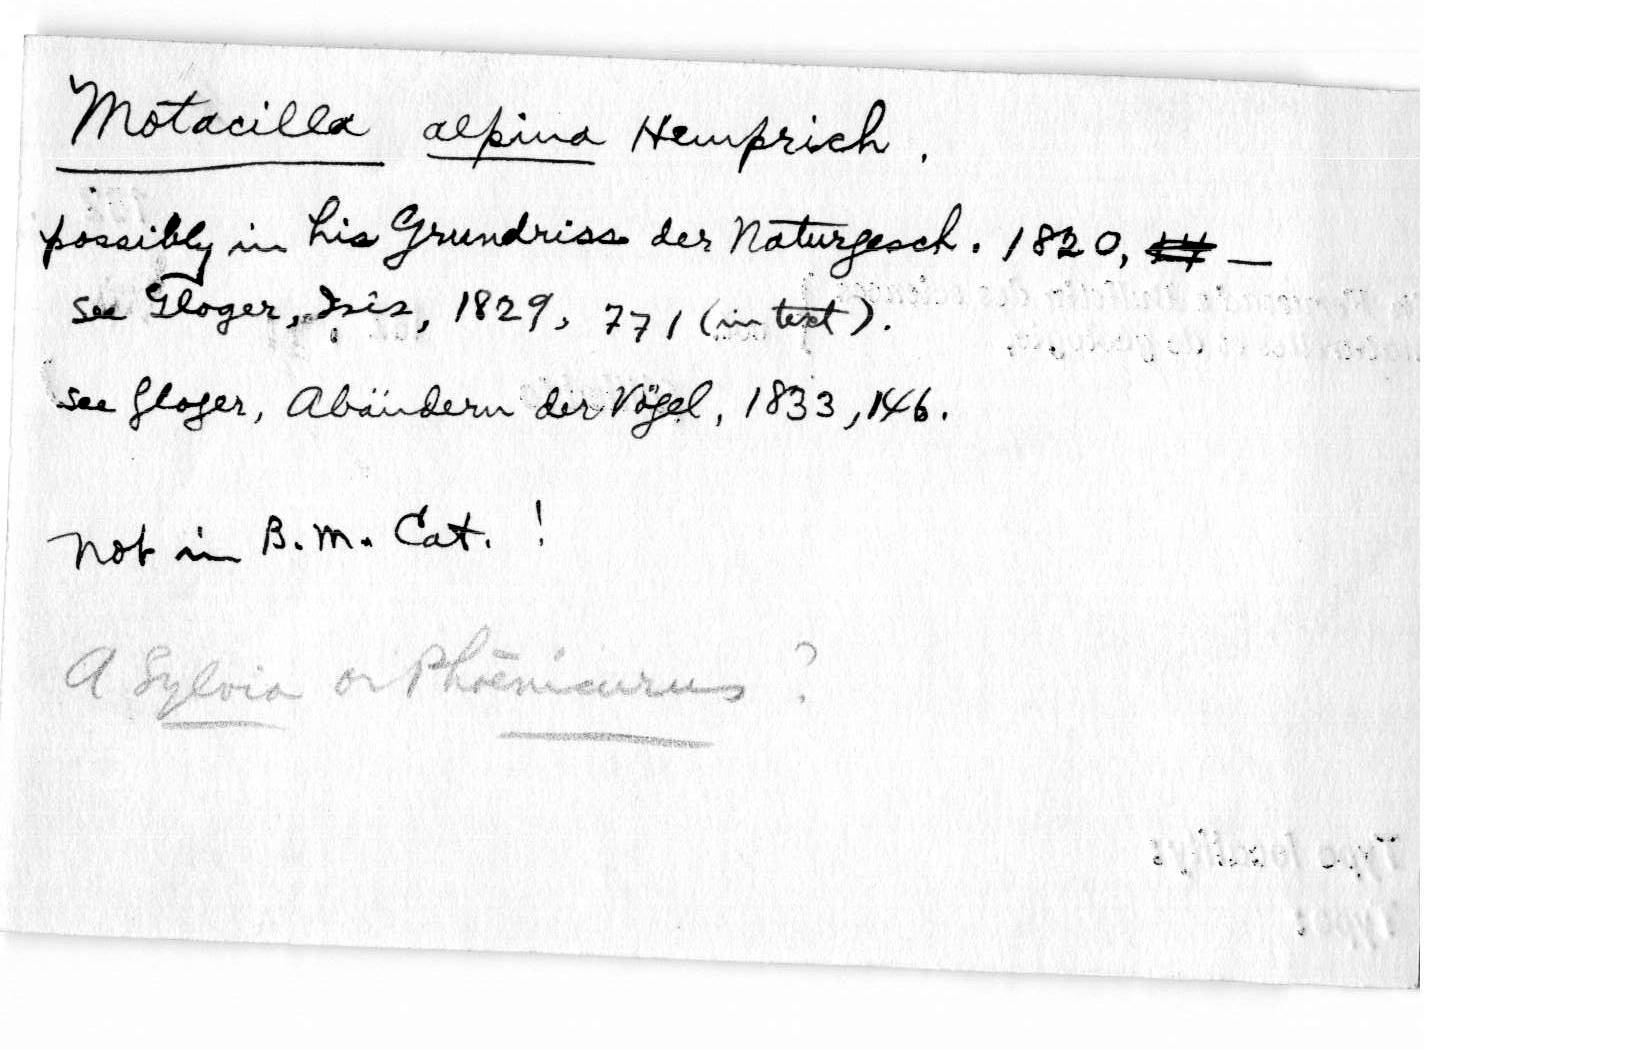 Motacilla alpina Hemprich.
possibly in his Grundriss der Naturgesch. 1820, —
see Gloger, Isis, 1829, 771 (in text).
see Gloger, Abändern der Vögel, 1833, 146.
not in B.M. Cat. !
A Sylvia or Phoenicurus ?
Type locality:
Type: